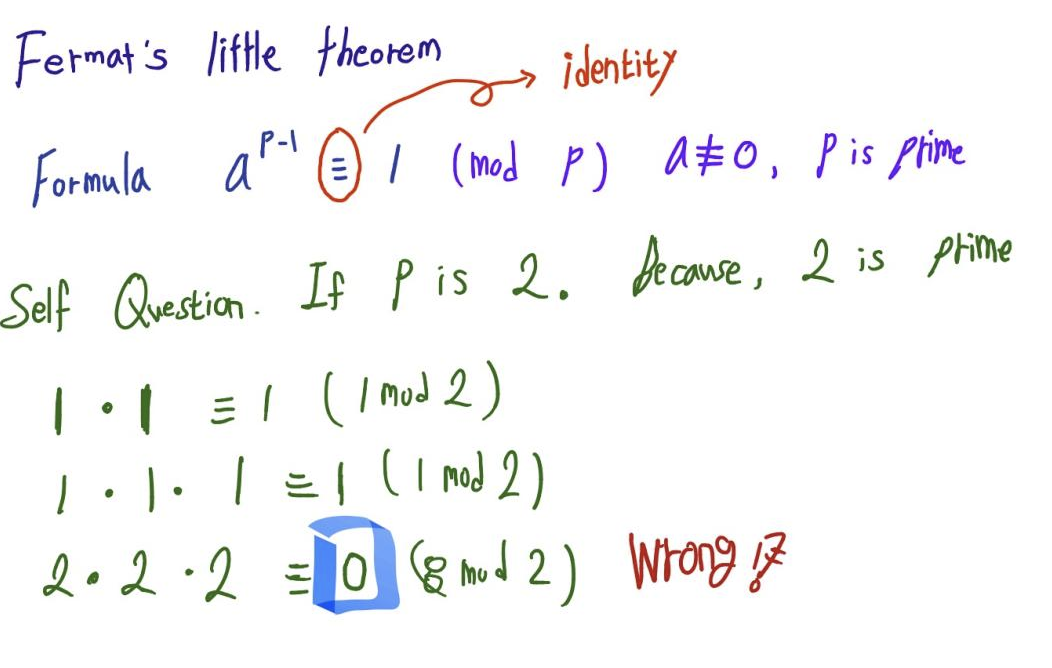 Fermat's little theorem
identity
Formula a^{p-1} ≡ 1 (mod p) a≢0, p is prime
Self Question. If p is 2. Because, 2 is prime
1 · 1 ≡ 1 (1 mod 2)
1 · 1 · 1 ≡ 1 (1 mod 2)
2 · 2 · 2 ≡ 0 (8 mod 2) Wrong !?